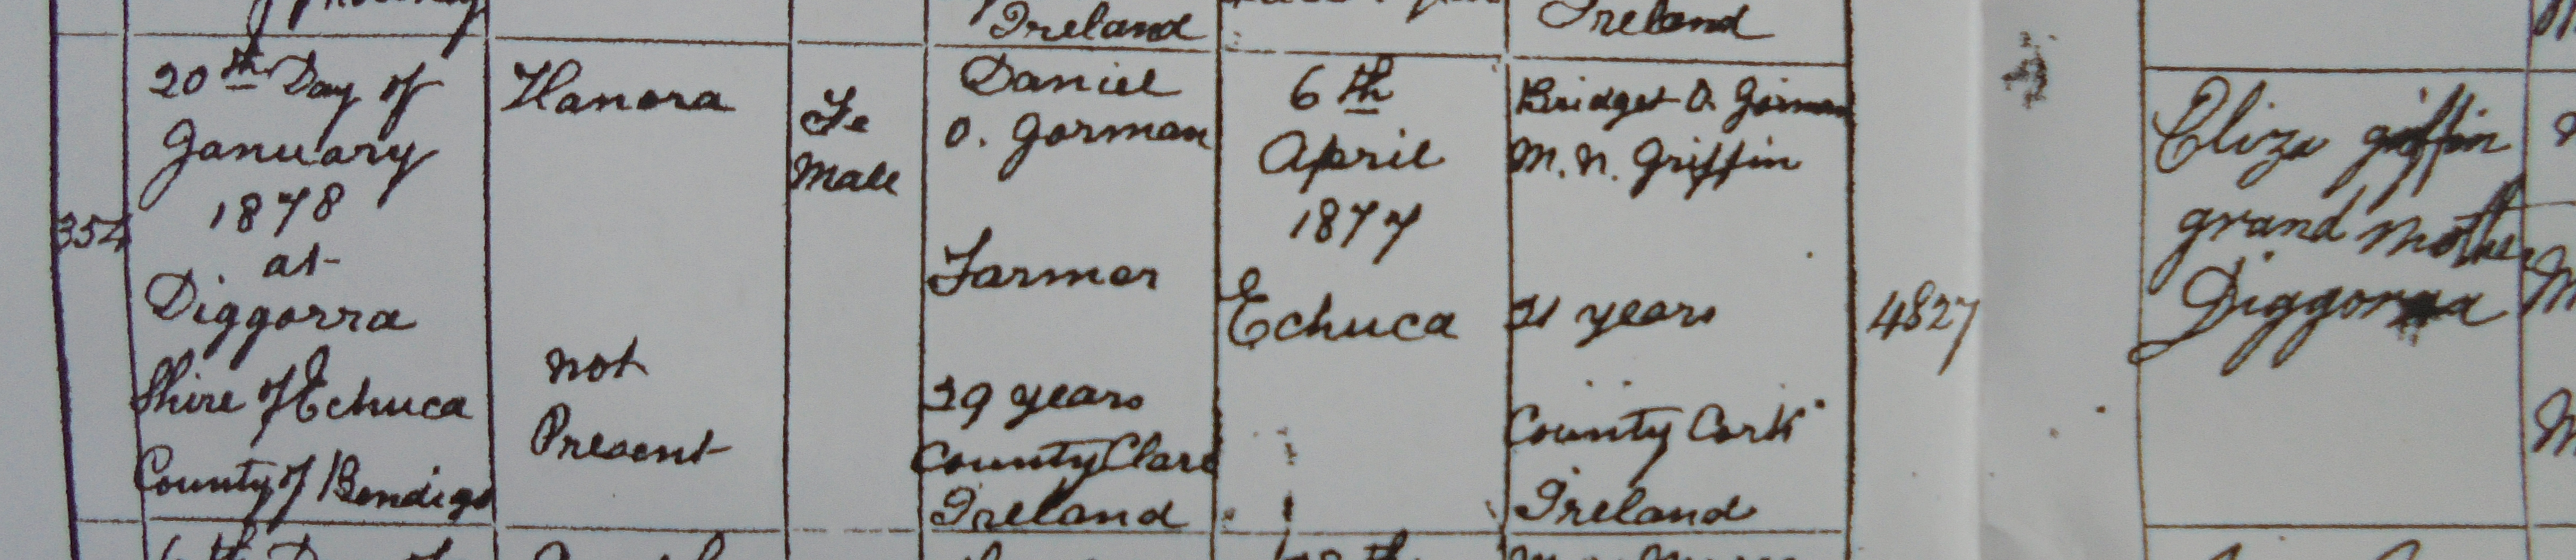 Ireland
Ireland
354
20th Day of
January
1878
at
Diggorra
Shire of Echuca
County of Bendigo
Hanora
not
Present
Fe
Male
Daniel
O. Gorman
Farmer
29 years
County Clare
Ireland
6th
April
1877
Echuca
Bridget O. Gorman
M. N. Griffin
21 years
County Cork
Ireland
4827
Eliza griffin
grand Mother
Diggorra